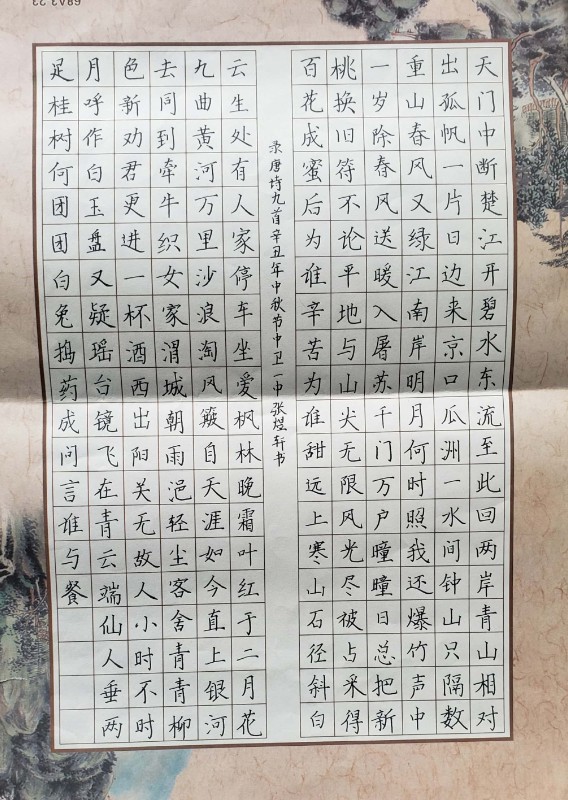 天门中断楚江开碧水东流至此回两岸青山相对
出孤帆一片日边来京口瓜洲一水间钟山只隔数
重山春风又绿江南岸明月何时照我还爆竹声中
一岁除春风送暖入屠苏千门万户曈曈日总把新
桃换旧符不论平地与山尖无限风光尽被占采得
百花成蜜后为谁辛苦为谁甜远上寒山石径斜白
录唐诗九首辛丑年中秋节中卫一中张煜轩书
云生处有人家停车坐爱枫林晚霜叶红于二月花
九曲黄河万里沙浪淘风簸自天涯如今直上银河
去同到牵牛织女家渭城朝雨浥轻尘客舍青青柳
色新劝君更进一杯酒西出阳关无故人小时不时
月呼作白玉盘又疑瑶台镜飞在青云端仙人垂两
足桂树何团团白兔捣药成问言谁与餐